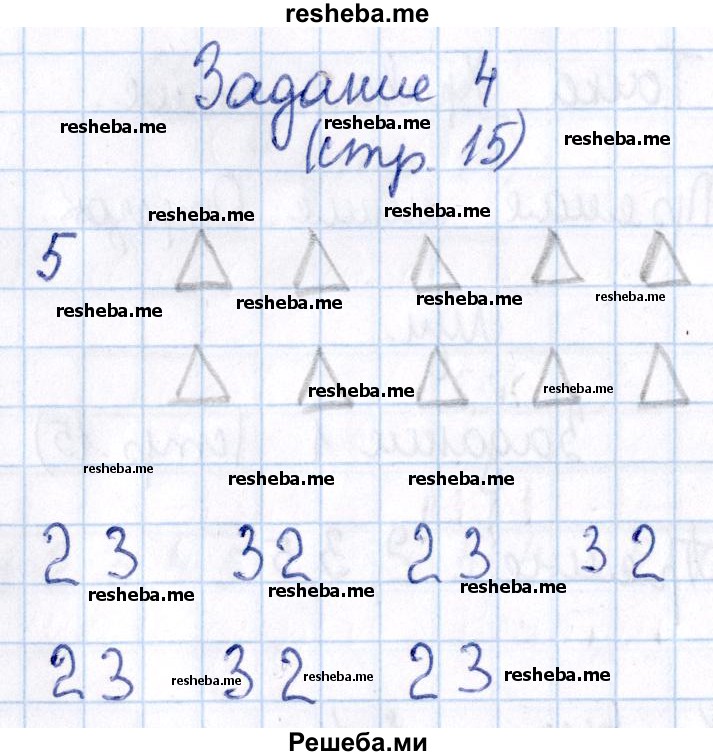 resheba.me
Задание 4
resheba.me resheba.me resheba.me
(стр. 15)
resheba.me resheba.me
5
resheba.me resheba.me resheba.me resheba.me
resheba.me resheba.me
resheba.me resheba.me resheba.me
2 3 3 2 2 3 3 2
resheba.me resheba.me resheba.me
2 3 resheba.me 3 2 resheba.me 2 3 resheba.me
Решеба.ми